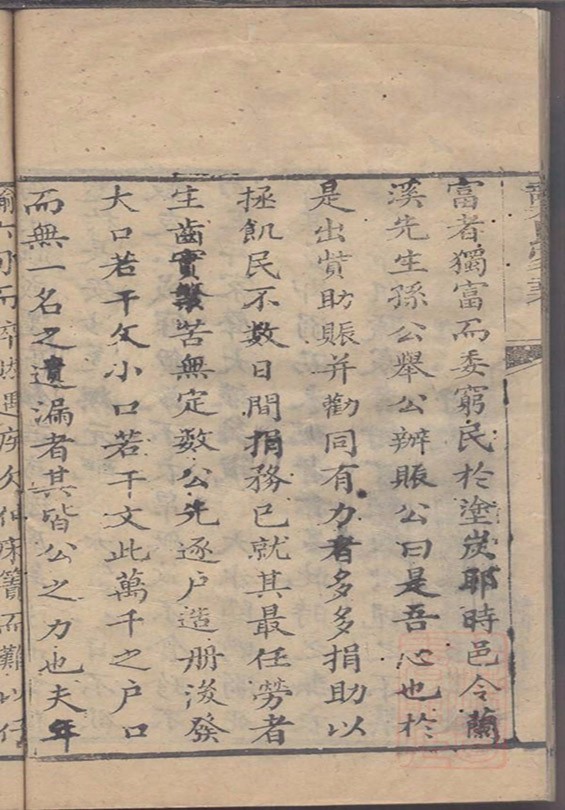 富者獨富而委窮民於塗炭耶時邑令蘭
溪先生孫公舉公辦賑公曰是吾心也於
是出貲助賑并勸同有力者多多捐助以
拯飢民不数日間捐務已就其最任勞者
生齒實繁苦無定数公先逐户造册後發
大口若干文小口若干文此萬千之户口
而無一名之遺漏者其皆公之力也夫年